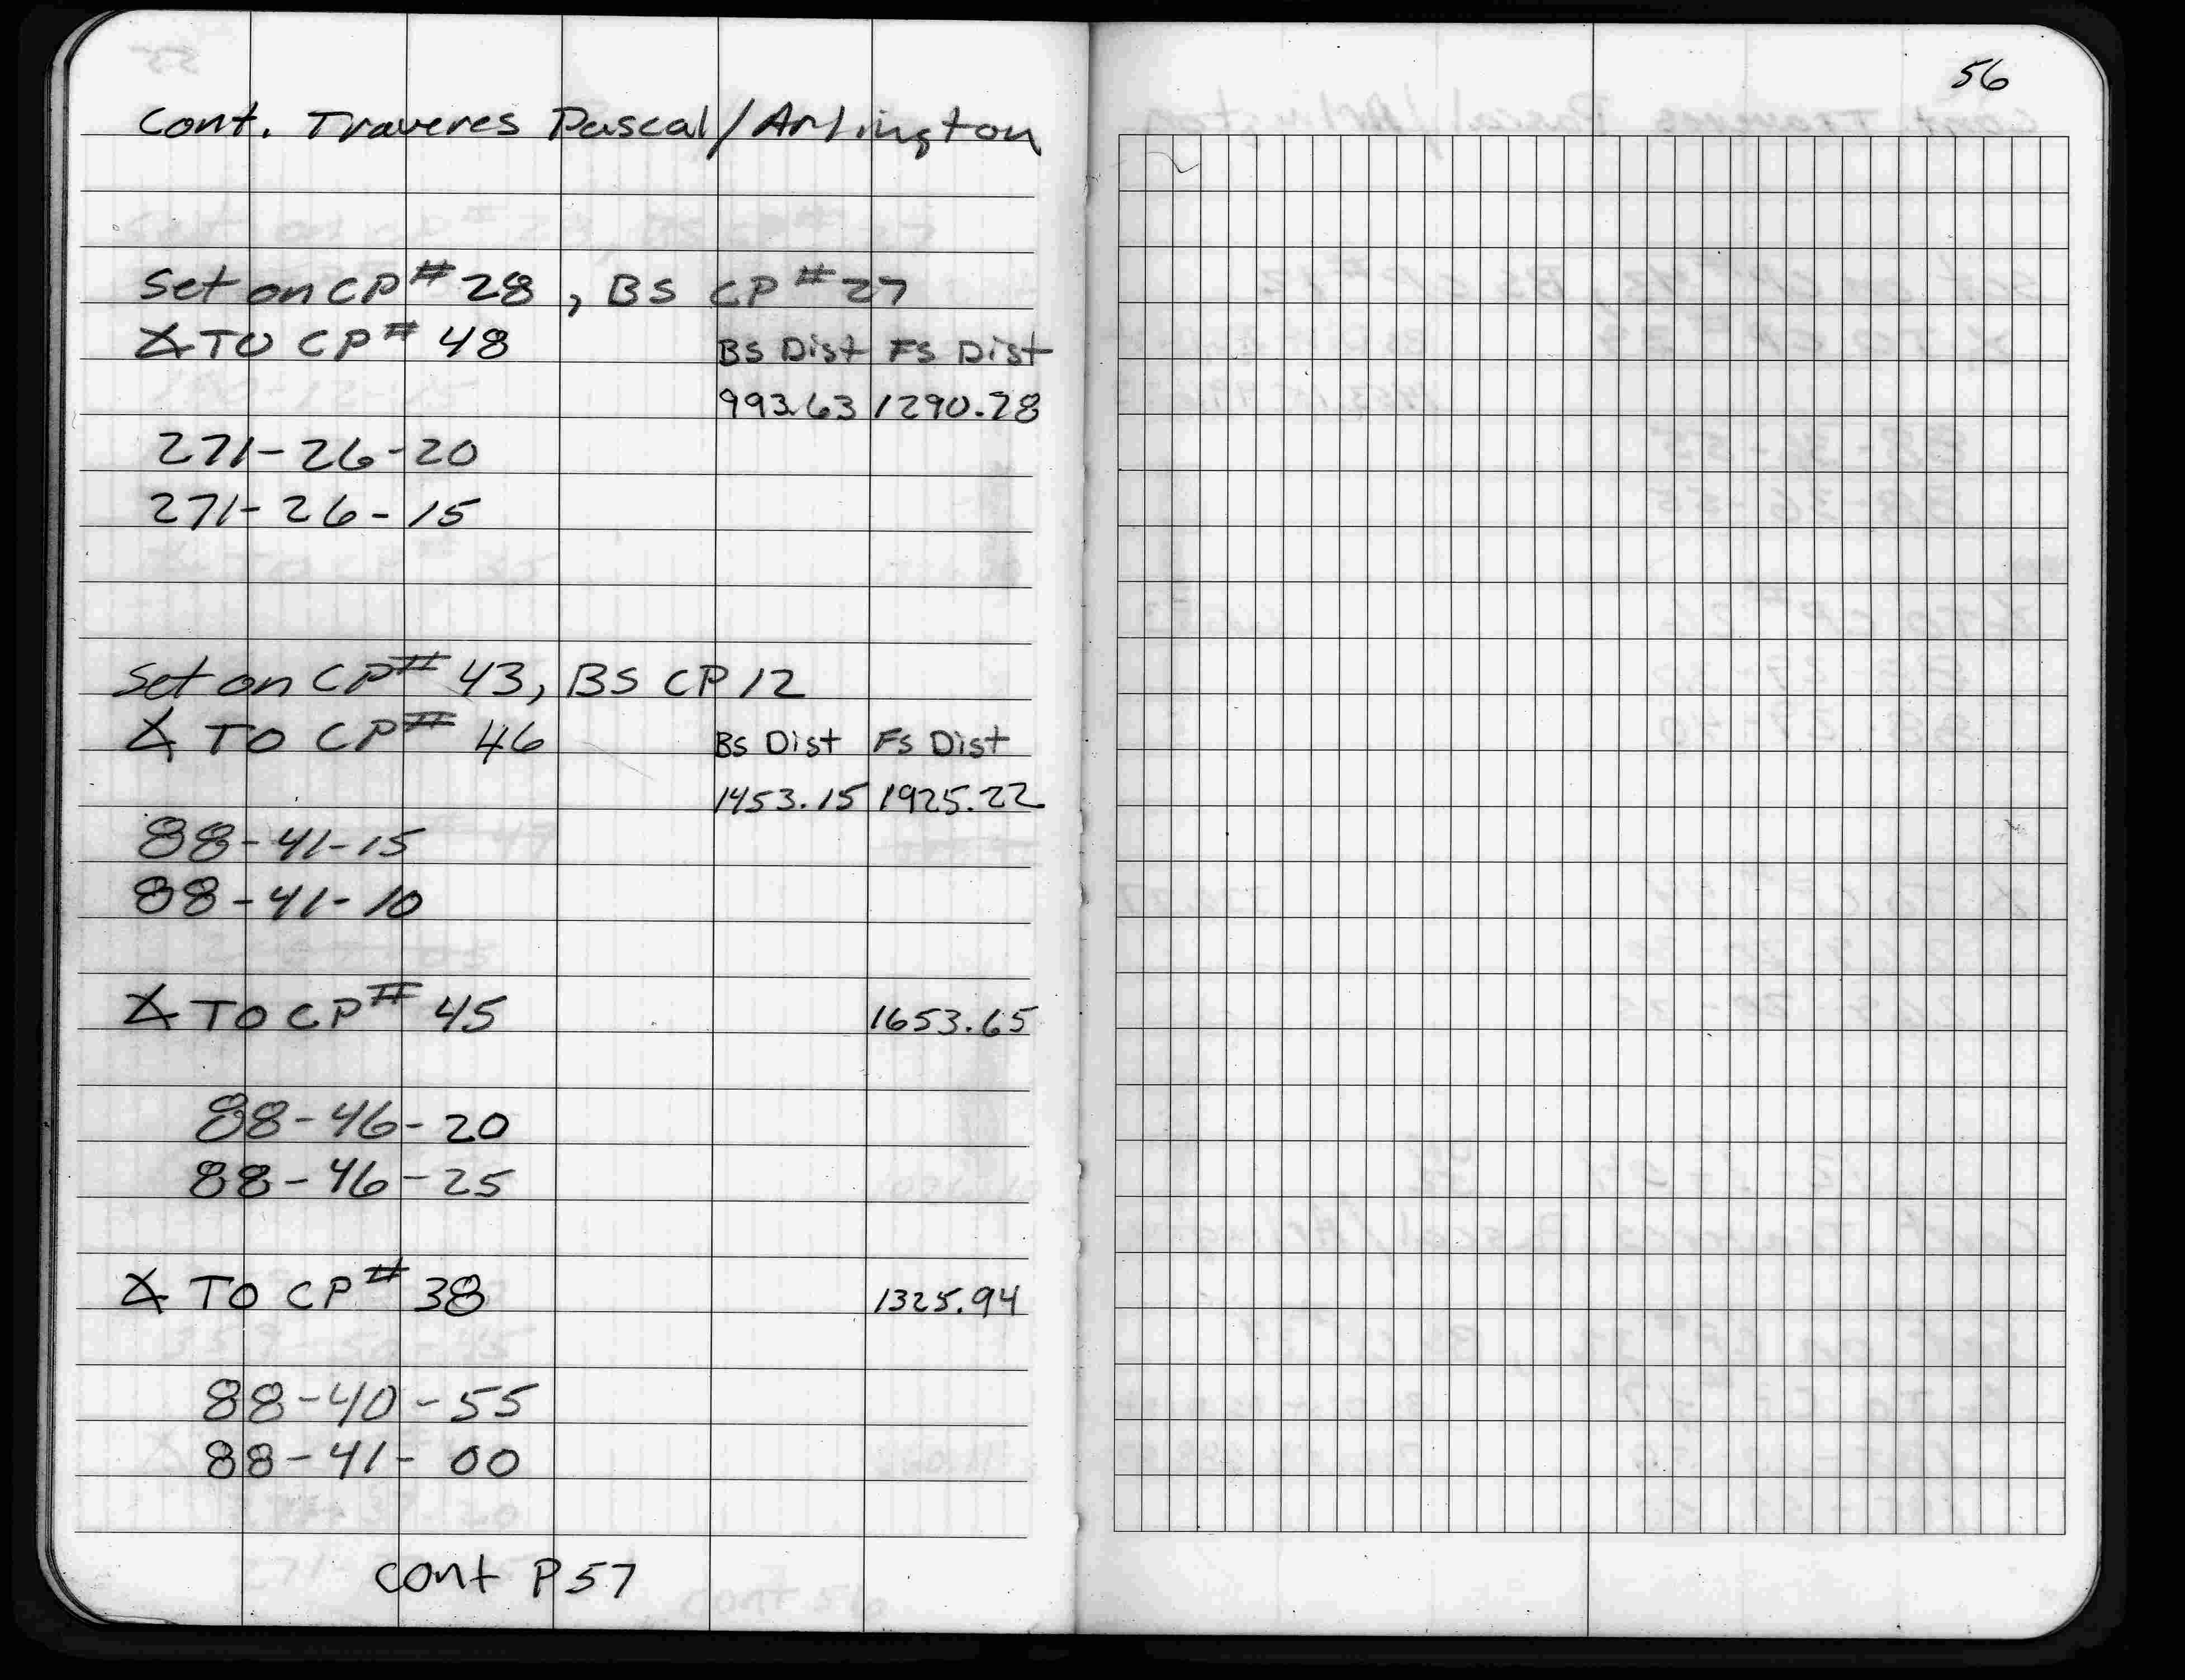 Cont. Traveres Pascal/Arlington
Set on CP# 28, BS CP #27
∡ TO CP# 48 BS Dist FS Dist
993.63 1290.28
271-26-20
271-26-15
Set on CP# 43, BS CP 12
∡ TO CP# 46 BS Dist FS Dist
1453.15 1925.22
88-41-15
88-41-10
∡ TO CP# 45 1653.65
88-46-20
88-46-25
∡ TO CP# 38 1325.94
88-40-55
88-41-00
cont P57
56